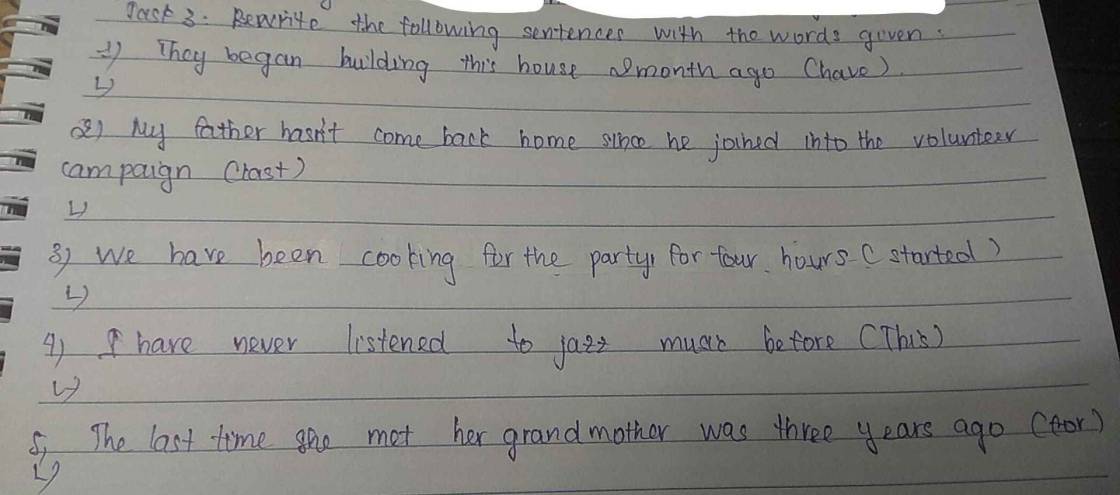 Task 3. Rewrite the following sentences with the words given:
1) They began building this house 2 month ago (have).
↳
2) My father hasn't come back home since he joined into the volunteer
campaign (last)
↳
3) We have been cooking for the party, for four hours (started)
↳
4) I have never listened to jazz music before (This)
↳
5, The last time she met her grandmother was three years ago (for)
↳